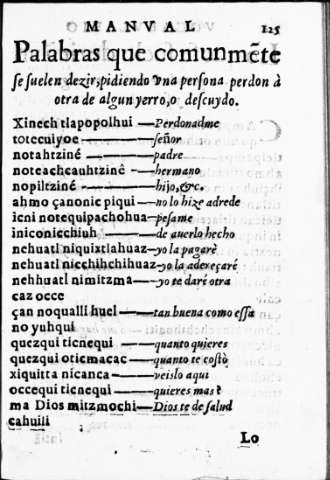 MANVAL 125
Palabras que comunmẽte
se suelen dezir, pidiendo vna persona perdon à
otra de algun yerro, o descuydo.
Xinech tlapopolhui — Perdonadme
totecuiyoe — señor
notahtziné — padre
noteachcauhtziné — hermano
nopiltziné — hijo, &c.
ahmo çanonic piqui — no lo hize adrede
icni notequipachohua — pesame
iniconicchiuh — de auerlo hecho
nehuatl niquixtlahuaz — yo la pagarè
nehuatl nicchihchihuaz — yo la adereçaré
nehhuatl nimitzma — yo te daré otra
caz occe
çan noqualli huel — tan buena como essa
no yuhqui
quezqui ticnequi — quanto quieres
quezqui oticmacac — quanto te costò
xiquitta nicanca — veislo aqui
occequi ticnequi — quieres mas?
ma Dios mitzmochi — Dios te de salud
cahuili
Lo